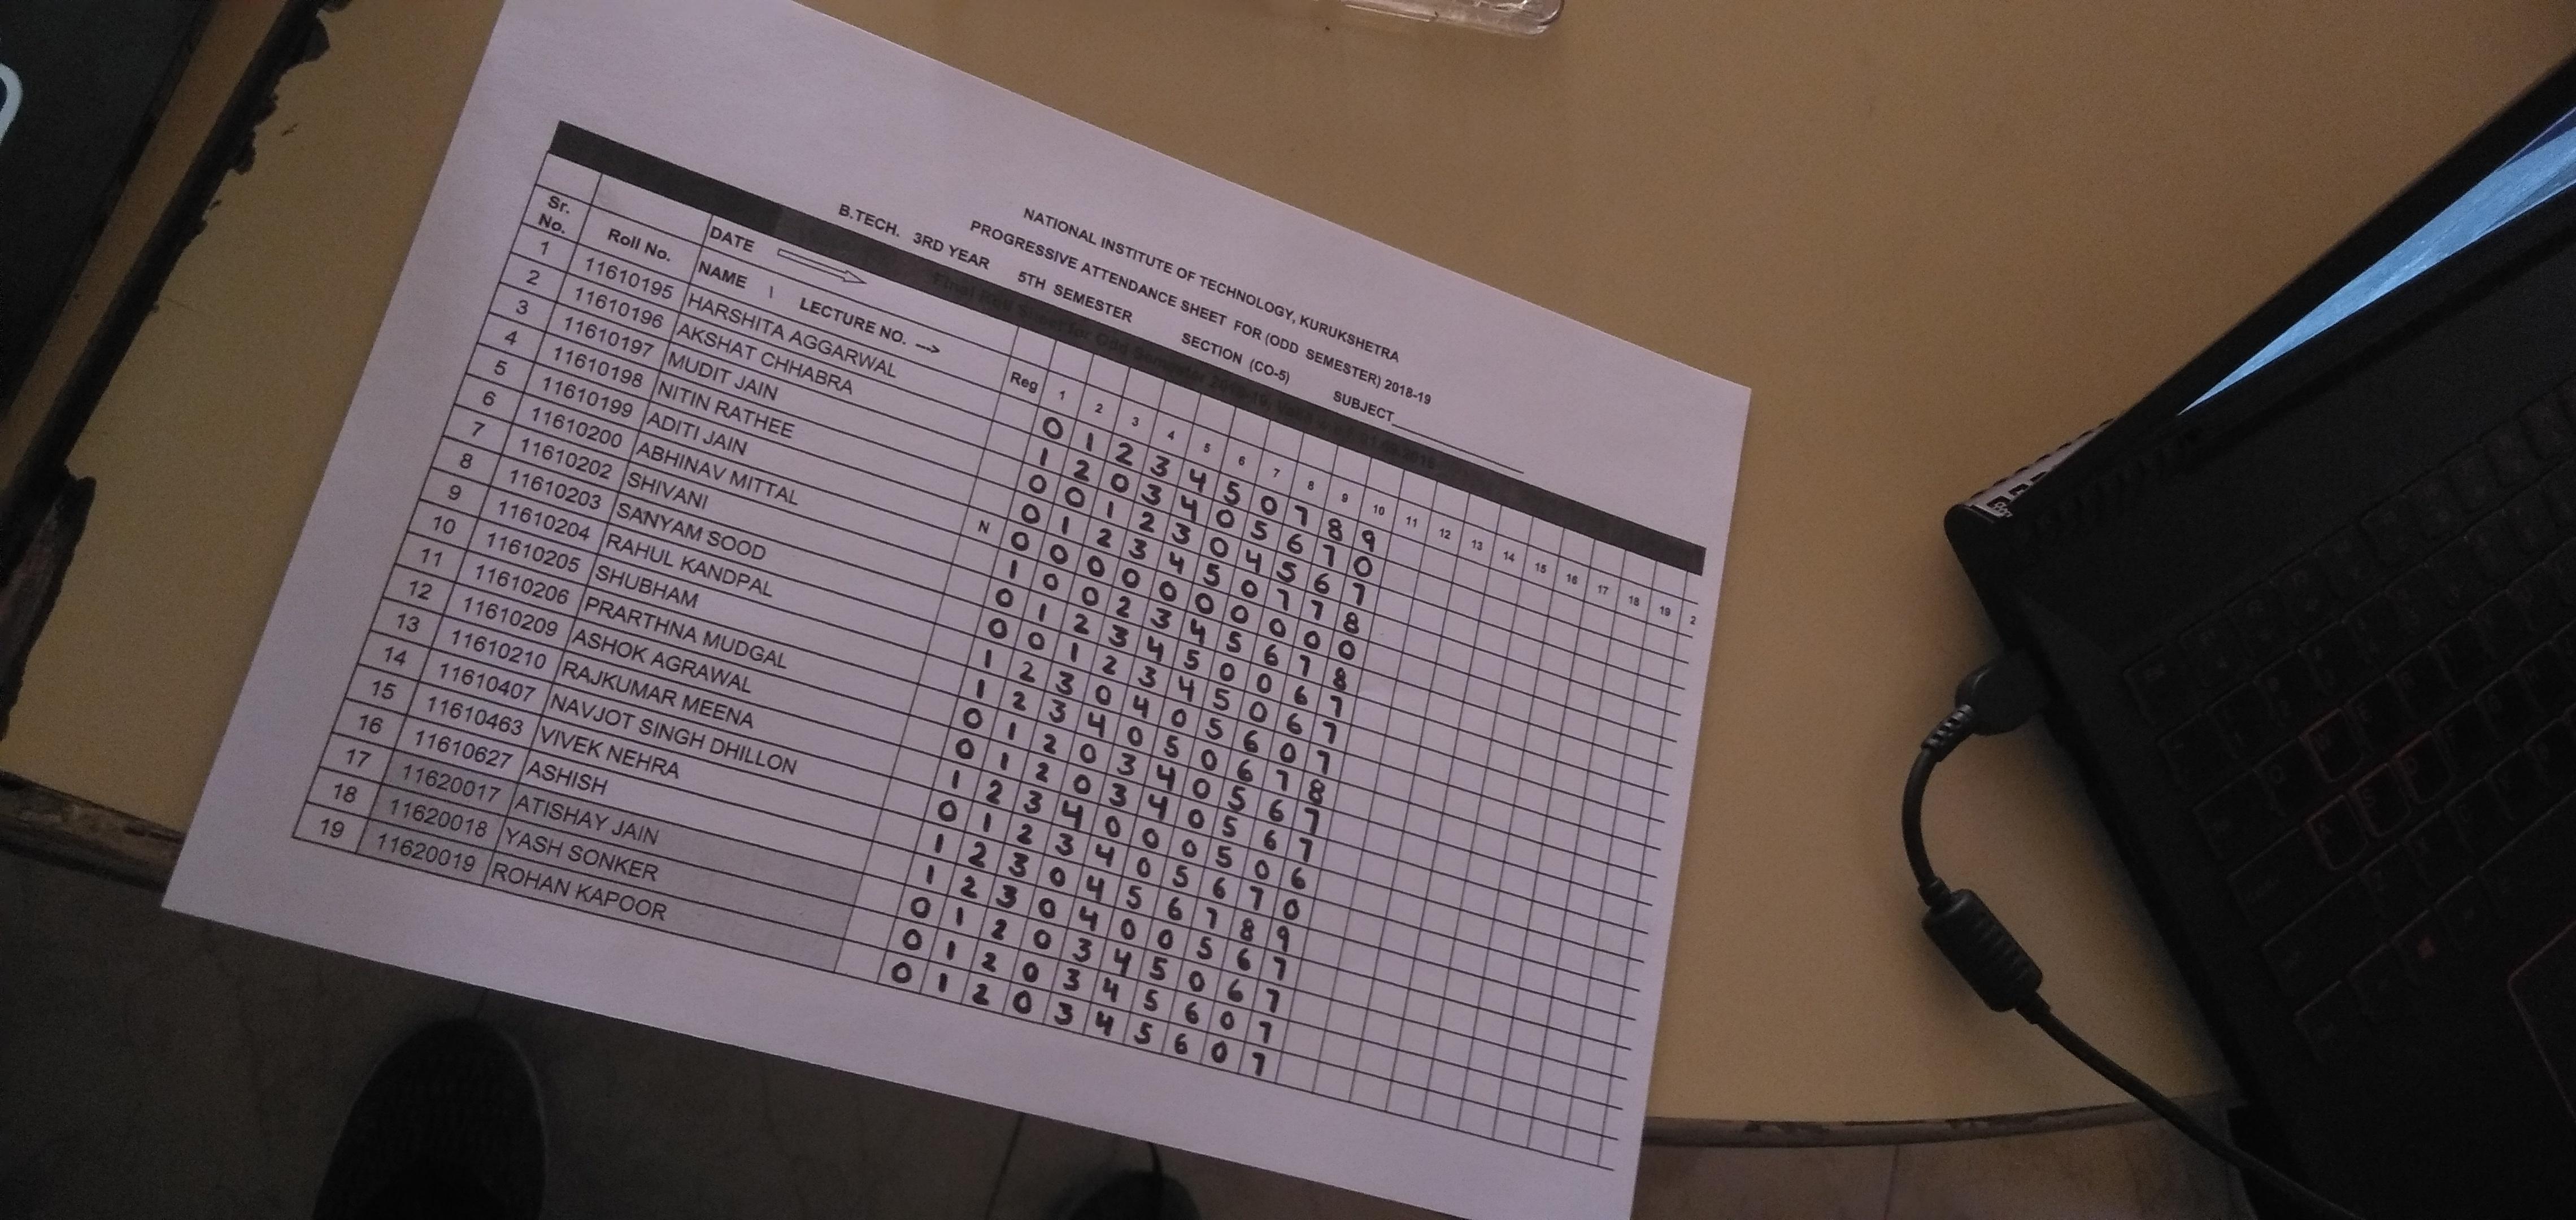 NATIONAL INSTITUTE OF TECHNOLOGY, KURUKSHETRA
PROGRESSIVE ATTENDANCE SHEET FOR (ODD SEMESTER) 2018-19
B.TECH. 3RD YEAR 5TH SEMESTER SECTION (CO-5) SUBJECT
Final Roll Sheet for Odd Semester 2018-19,
DATE
Sr. No. Roll No. NAME \ LECTURE NO. --> Reg 1 2 3 4 5 6 7 8 9 10 11 12 13 14 15 16 17 18 19 2
1 11610195 HARSHITA AGGARWAL 0 1 2 3 4 5 0 7 8 9
2 11610196 AKSHAT CHHABRA 1 2 0 3 4 0 5 6 7 0
3 11610197 MUDIT JAIN 0 0 1 2 3 0 4 5 6 7
4 11610198 NITIN RATHEE 0 1 2 3 4 5 0 7 7 8
5 11610199 ADITI JAIN N 0 0 0 0 0 0 0 0 0 0
6 11610200 ABHINAV MITTAL 1 0 0 2 3 4 5 6 7 8
7 11610202 SHIVANI 0 1 2 3 4 5 0 0 6 7
8 11610203 SANYAM SOOD 0 0 1 2 3 4 5 0 6 7
9 11610204 RAHUL KANDPAL 1 2 3 0 4 0 5 6 0 7
10 11610205 SHUBHAM 1 2 3 4 0 5 0 6 7 8
11 11610206 PRARTHNA MUDGAL 0 1 2 0 3 4 0 5 6 7
12 11610209 ASHOK AGRAWAL 0 1 2 0 3 4 0 5 6 7
13 11610210 RAJKUMAR MEENA 1 2 3 4 0 0 0 5 0 6
14 11610407 NAVJOT SINGH DHILLON 0 1 2 3 4 0 5 6 7 0
15 11610463 VIVEK NEHRA 1 2 3 0 4 5 6 7 8 9
16 11610627 ASHISH 1 2 3 0 4 0 0 5 6 7
17 11620017 ATISHAY JAIN 0 1 2 0 3 4 5 0 6 7
18 11620018 YASH SONKER 0 1 2 0 3 4 5 6 0 7
19 11620019 ROHAN KAPOOR 0 1 2 0 3 4 5 6 0 7